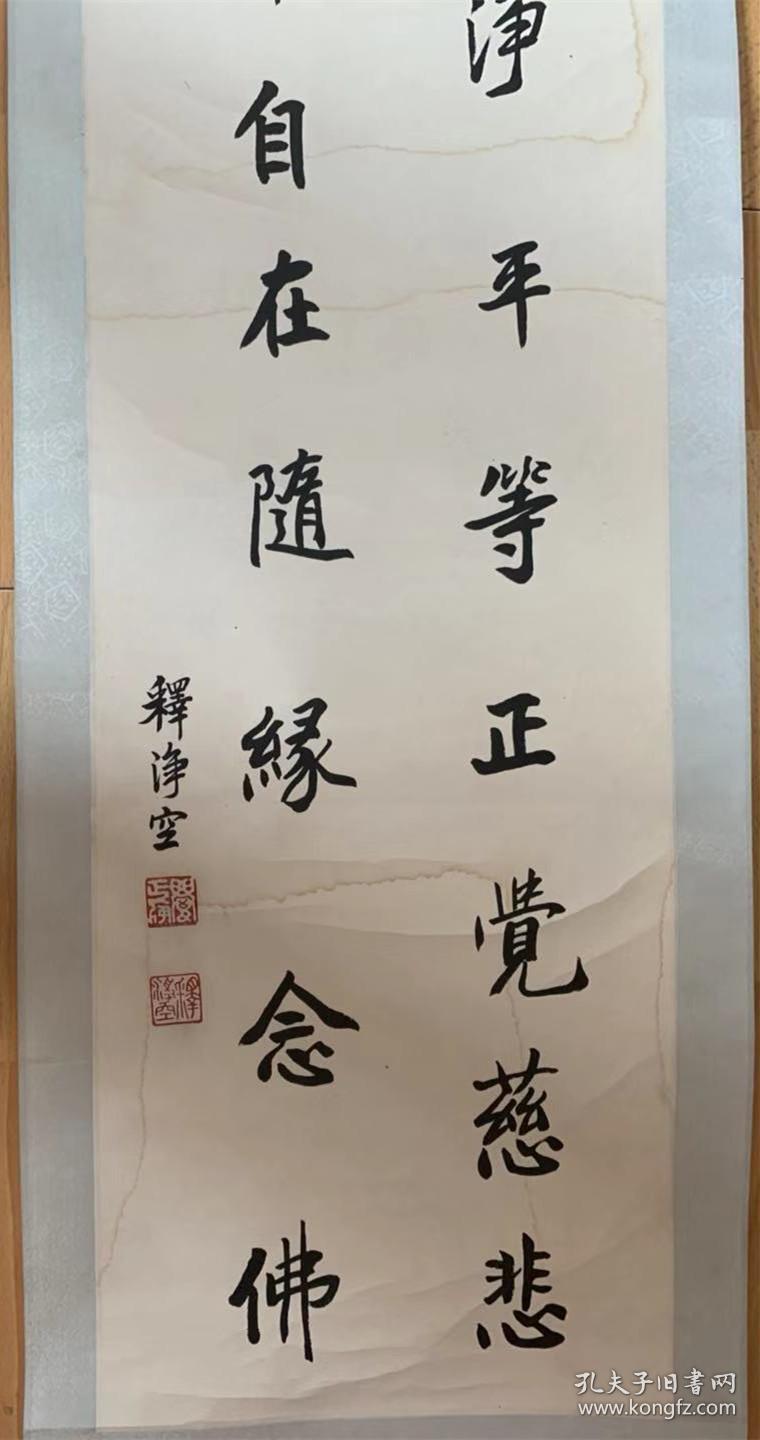 淨平等正覺慈悲
自在隨緣念佛
釋淨空
釋淨空
孔夫子旧书网
www.kongfz.com